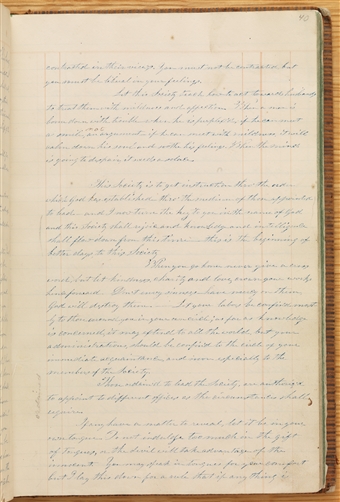 contracted in their views. You must not be contracted, but
you must be liberal in your feelings.
Let this Society teach how to act towards husbands
to treat them with mildness and affection. When a man is
borne down with trouble— when he is perplexed, if he can meet
a smile, not an argument if he can meet with mildness, it will
calm down his soul and soothe his feelings. When the mind
is going to despair, it needs a solace.
This Society is to get instruction thro' the order
which God has established— thro' the medium of those appointed
to lead— and I now turn the key to you in the name of God
and this Society shall rejoice and knowledge and intelligence
shall flow down from this time— this is the beginning of
better days to this Society
When you go home never give a cross
word, but let kindness, charity and love, crown your works
henceforward. Don't envy sinners— have mercy on them.
God will destroy them.— Let your labors be confined most-
ly to those around you in your own circle; as far as knowledge
is concerned, it may extend to all the world, but your
administrations should be confined to the circle of your
immediate acquaintance, and more especially to the
members of the Society.
Those ordain'd to lead the Society, are authoriz'd
to appoint to different offices as the circumstances shall
require.
If any have a matter to reveal, let it be in your
own tongue. Do not indulge too much in the gift
of tongues, or the devil will take advantage of the
innocent. You may speak in tongues for your comfort
but I lay this down for a rule that if any thing is